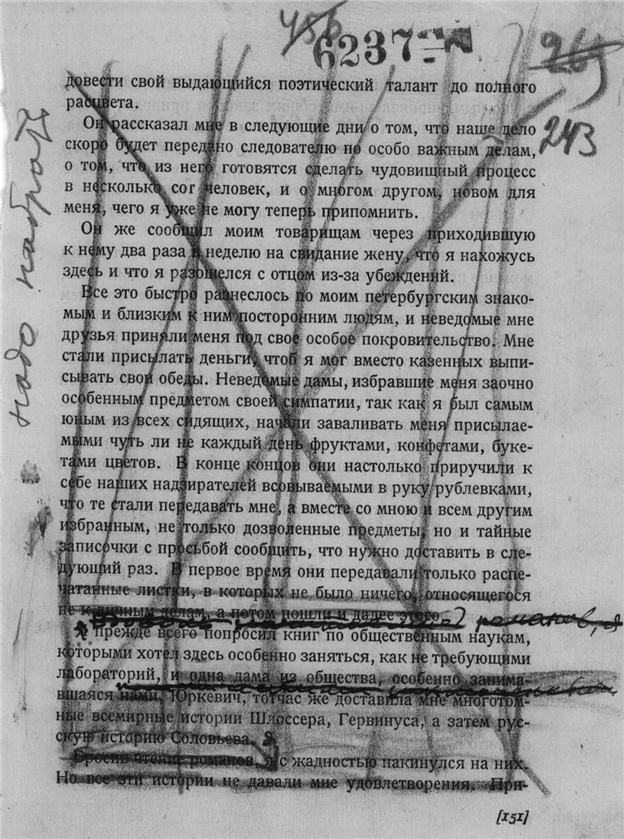 456
6237
265
243
надо набрать
довести свой выдающийся поэтический талант до полного
расцвета.
Он рассказал мне в следующие дни о том, что наше дело
скоро будет передано следователю по особо важным делам,
о том, что из него готовятся сделать чудовищный процесс
в несколько сот человек, и о многом другом, новом для
меня, чего я уже не могу теперь припомнить.
Он же сообщил моим товарищам через приходившую
к нему два раза в неделю на свидание жену, что я нахожусь
здесь и что я разошелся с отцом из-за убеждений.
Все это быстро разнеслось по моим петербургским знако-
мым и близким к ним посторонним людям, и неведомые мне
друзья приняли меня под свое особое покровительство. Мне
стали присылать деньги, чтоб я мог вместо казенных выпи-
сывать свои обеды. Неведомые дамы, избравшие меня заочно
особенным предметом своей симпатии, так как я был самым
юным из всех сидящих, начали заваливать меня присылае-
мыми чуть ли не каждый день фруктами, конфетами, буке-
тами цветов. В конце концов они настолько приручили к
себе наших надзирателей всовываемыми в руку рублевками,
что те стали передавать мне, а вместе со мною и всем другим
избранным, не только дозволенные предметы, но и тайные
записочки с просьбой сообщить, что нужно доставить в сле-
дующий раз. В первое время они передавали только распе-
чатанные листки, в которых не было ничего, относящегося
не к личным делам, а потом пошли и далее этого.
романов, я
Я прежде всего попросил книг по общественным наукам,
которыми хотел здесь особенно заняться, как не требующими
лабораторий, и одна дама из общества, особенно занима-
вшаяся нами, Юркевич, тотчас же доставила мне многотом-
ные всемирные истории Шлоссера, Гервинуса, а затем рус-
скую историю Соловьева.
Бросив чтение романов, я с жадностью накинулся на них.
Но все эти истории не давали мне удовлетворения. При-
[151]